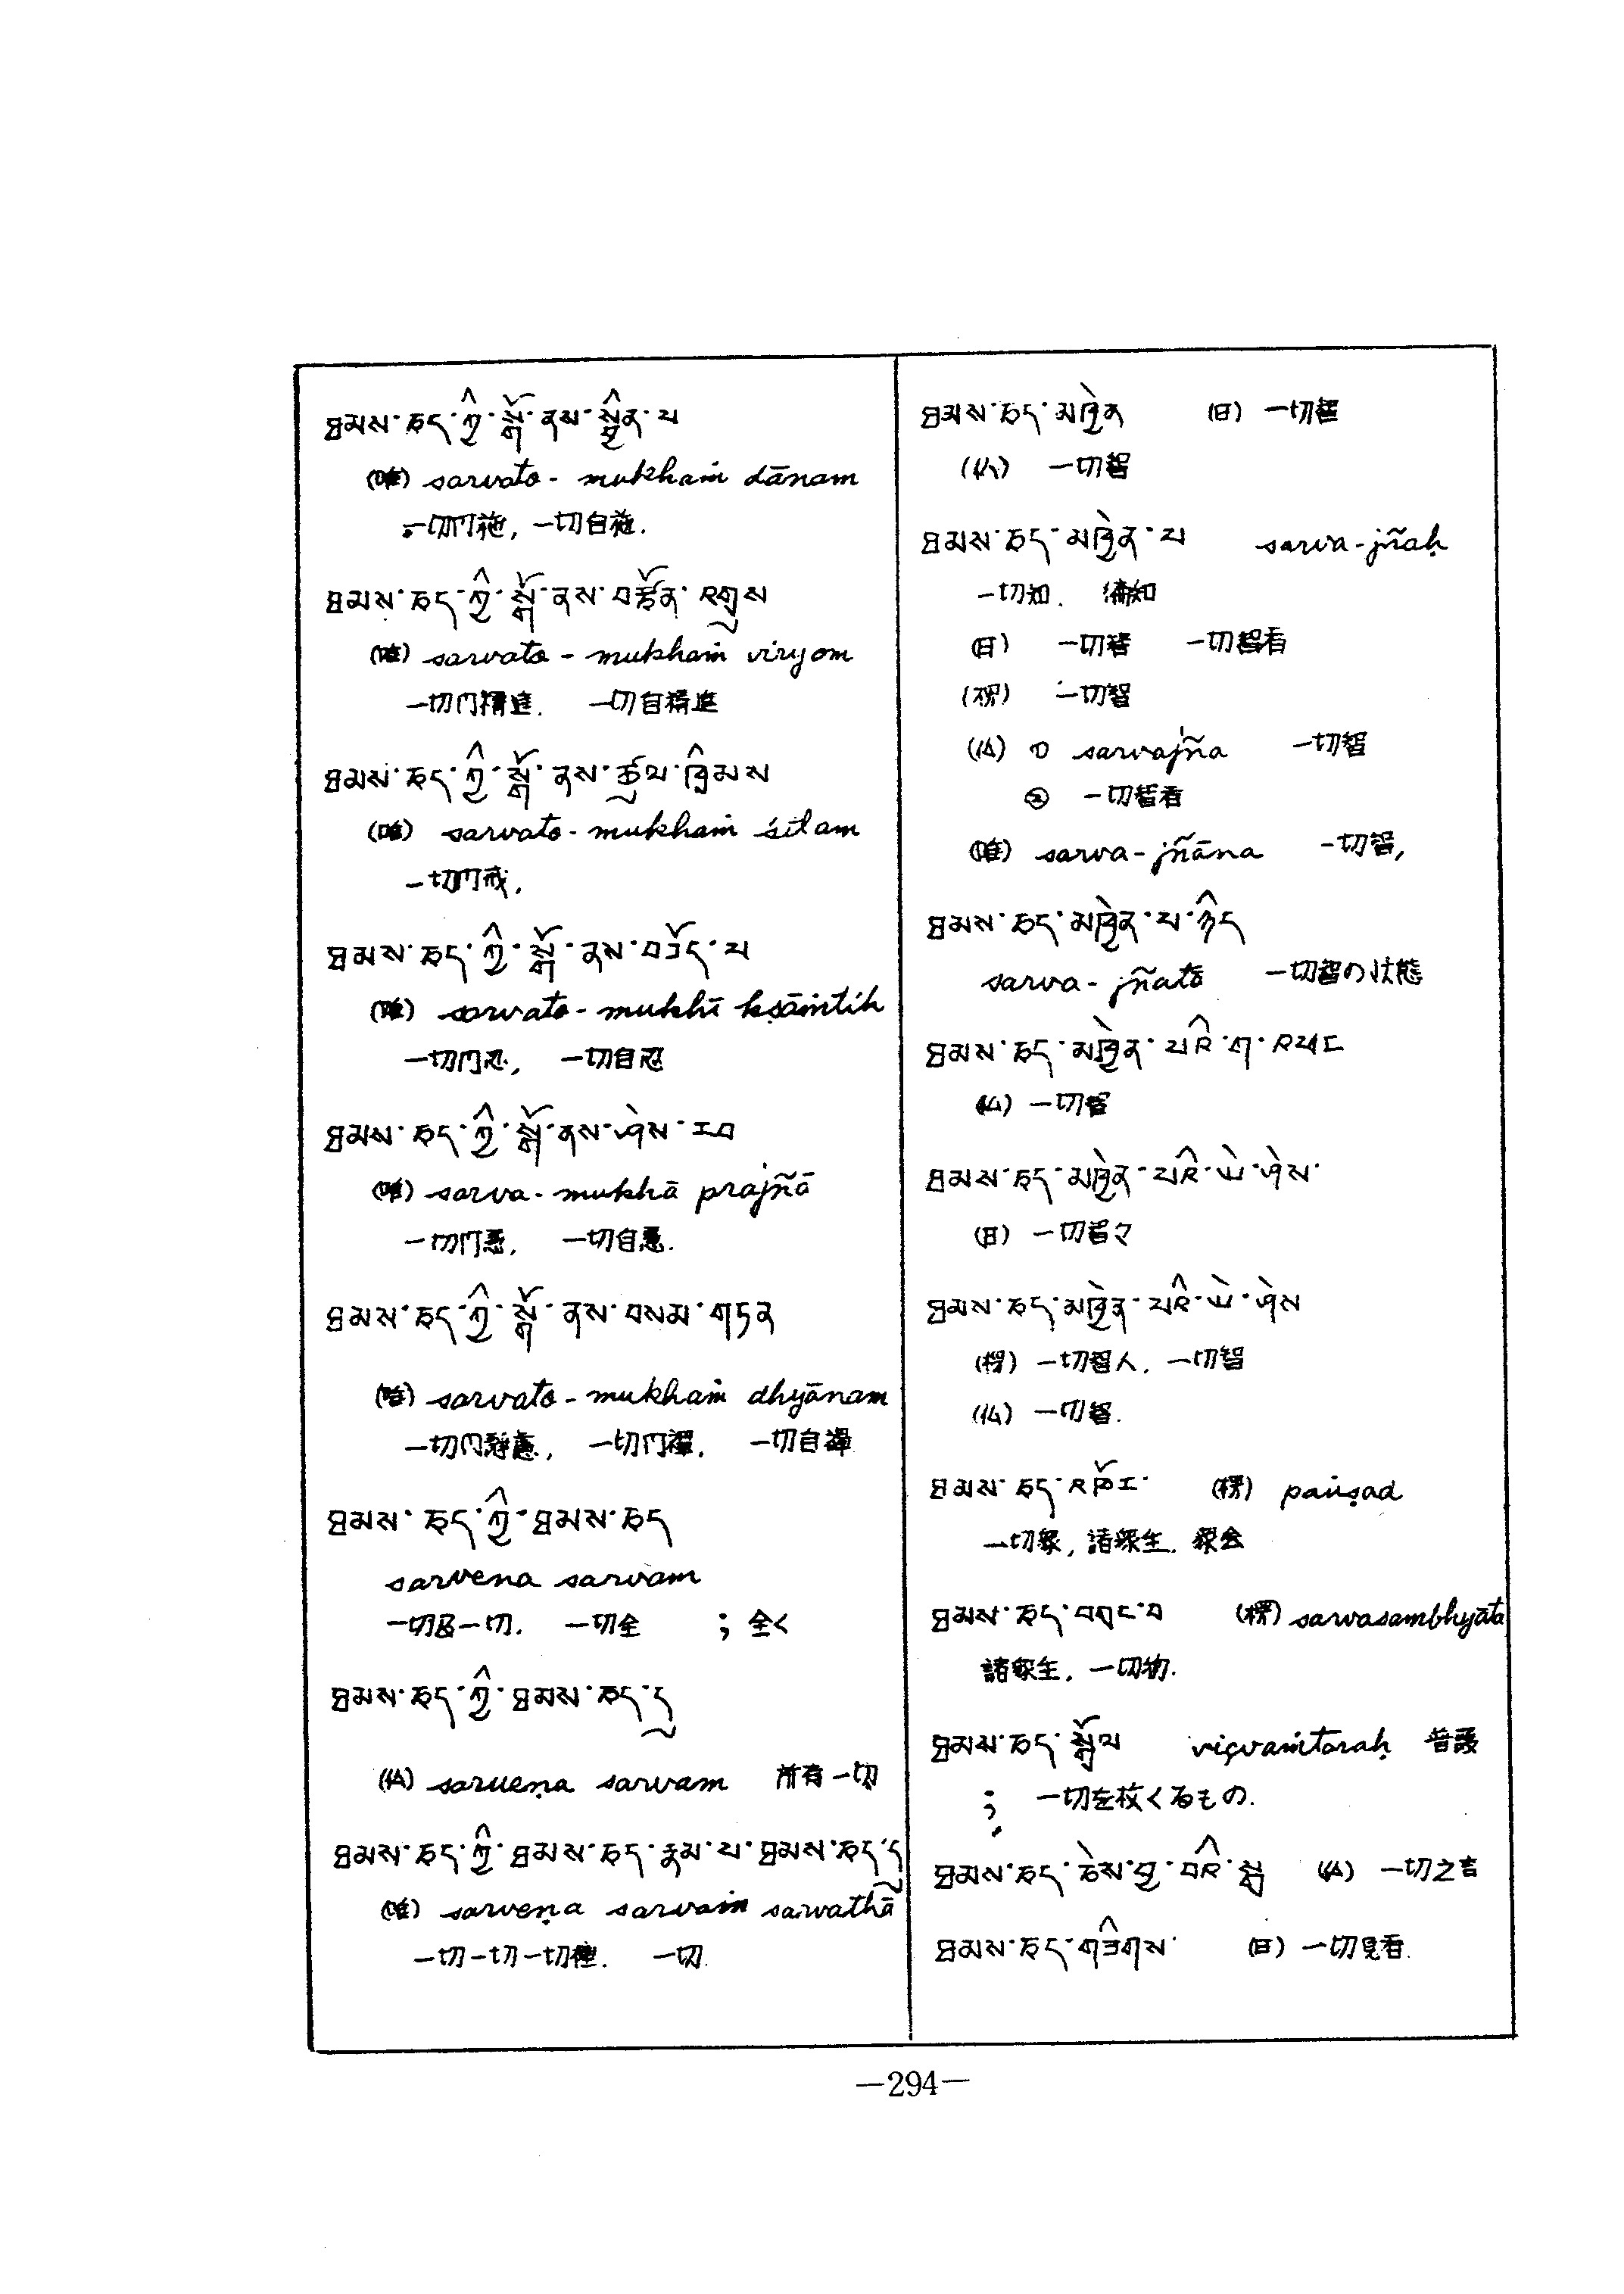 ཐམས་ཅད་ཀྱི་སྒོ་ནས་སྦྱིན་པ
(唯) sarvato - mukhaṁ dānam
一切門施, 一切自施.
ཐམས་ཅད་ཀྱི་སྒོ་ནས་བརྩོན་འགྲུས
(唯) sarvato - mukhaṁ viryom
一切門精進. 一切自精進
ཐམས་ཅད་ཀྱི་སྒོ་ནས་ཚུལ་ཁྲིམས
(唯) sarvato - mukhaṁ śilam
一切門戒,
ཐམས་ཅད་ཀྱི་སྒོ་ནས་བཟོད་པ
(唯) sarvato - mukhī kṣāṁtih
一切門忍, 一切自忍
ཐམས་ཅད་ཀྱི་སྒོ་ནས་ཤེས་རབ
(唯) sarva - mukhā prajñā
一切門慧, 一切自慧.
ཐམས་ཅད་ཀྱི་སྒོ་ནས་བསམ་གཏན
(唯) sarvato - mukhaṁ dhyānam
一切門靜慮, 一切門禪, 一切自禪
ཐམས་ཅད་ཀྱི་ཐམས་ཅད
sarvena sarvam
一切一切. 一切全 ; 全く
ཐམས་ཅད་ཀྱི་ཐམས་ཅད་དུ
(仏) sarveṇa sarvam 所有一切
ཐམས་ཅད་ཀྱི་ཐམས་ཅད་རྣམ་པ་ཐམས་ཅད་དུ
(唯) sarveṇa sarvaṁ sarvathā
一切一切一切種. 一切.
ཐམས་ཅད་མཁྱེན (日) 一切智
(仏) 一切智
ཐམས་ཅད་མཁྱེན་པ sarva - jñaḥ
一切知. 徧知
(日) 一切智 一切智者
(楞) 一切智
(仏) ① sarvajña 一切智
② 一切智者
(唯) sarva - jñāna 一切智,
ཐམས་ཅད་མཁྱེན་པ་ཉིད
sarva - jñatā 一切智の状態
ཐམས་ཅད་མཁྱེན་པའི་ག་འཕང
(仏) 一切智
ཐམས་ཅད་མཁྱེན་པའི་ཡེ་ཤེས་
(日) 一切智々
ཐམས་ཅད་མཁྱེན་པའི་ཡེ་ཤེས
(楞) 一切智人. 一切智
(仏) 一切智.
ཐམས་ཅད་འཁོར་ (楞) paṅṣad
一切衆, 諸衆生. 衆会
ཐམས་ཅད་བགང་བ (楞) sarvasambhyāta
諸衆生. 一切物.
ཐམས་ཅད་སྒྲོལ viçvaṁtaraḥ 普護
; 一切を救くるもの.
ཐམས་ཅད་ཅེས་བྱ་བའི་སྒྲ (仏) 一切之言
ཐམས་ཅད་གཟིགས་ (日) 一切見者.
—294—